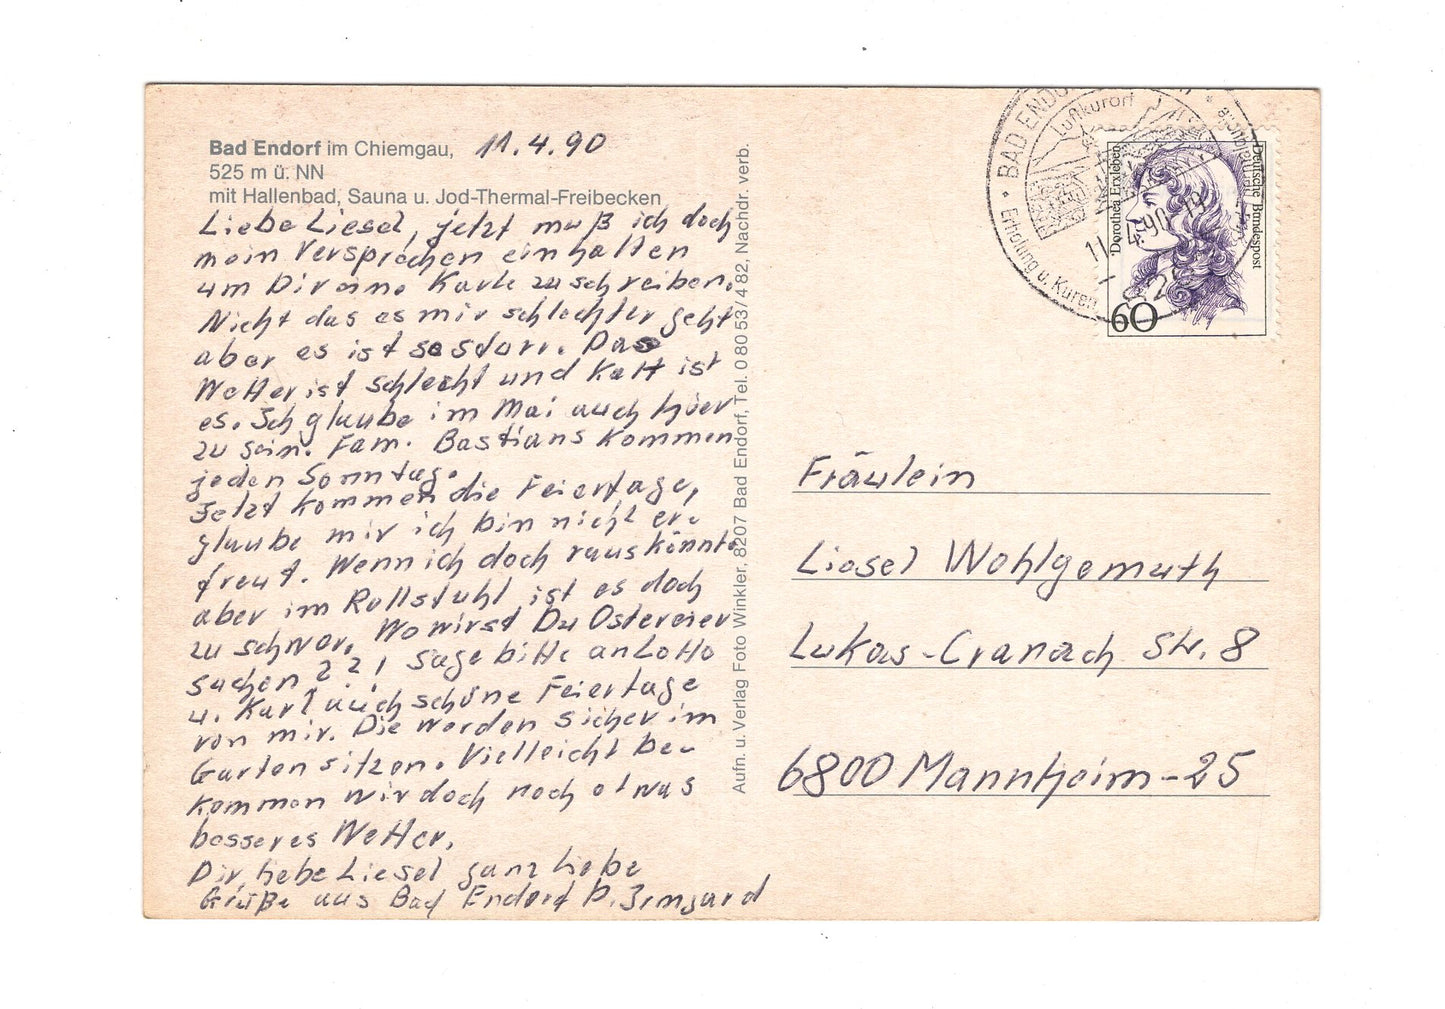 Bad Endorf im Chiemgau, 11.4.90
525 m ü. NN
mit Hallenbad, Sauna u. Jod-Thermal-Freibecken
Liebe Liesel, jetzt muß ich doch
mein Versprechen einhalten
um Dir eine Karte zu schreiben.
Nicht das es mir schlechter geht
aber es ist so stur. Das
Wetter ist schlecht und Kalt ist
es. Ich glaube im Mai auch hier
zu sein. Fam. Bastians Kommen
jeden Sonntag.
Jetzt kommen die Feiertage,
glaube mir ich bin nicht er-
freut. Wenn ich doch raus könnte
aber im Rollstuhl ist es doch
zu schwer. Wo wirst Du Ostereier
suchen ? ? ! Sage bitte an Lotte
u. Karl auch schöne Feiertage
von mir. Die werden sicher im
Garten sitzen. Vielleicht be-
kommen wir doch noch etwas
besseres Wetter.
Dir, liebe Liesel ganz liebe
Grüße aus Bad Endorf D. Irmgard
Aufn. u. Verlag Foto Winkler, 8207 Bad Endorf, Tel. 0 80 53 / 4 82, Nachdr. verb.
BAD ENDO
Luftkurort
Erholung u. Kuren
11.-4.90-19
Deutsche Bundespost
Dorothea Erxleben
60
Fräulein
Liesel Wohlgemuth
Lukas-Cranach Str. 8
6800 Mannheim-25